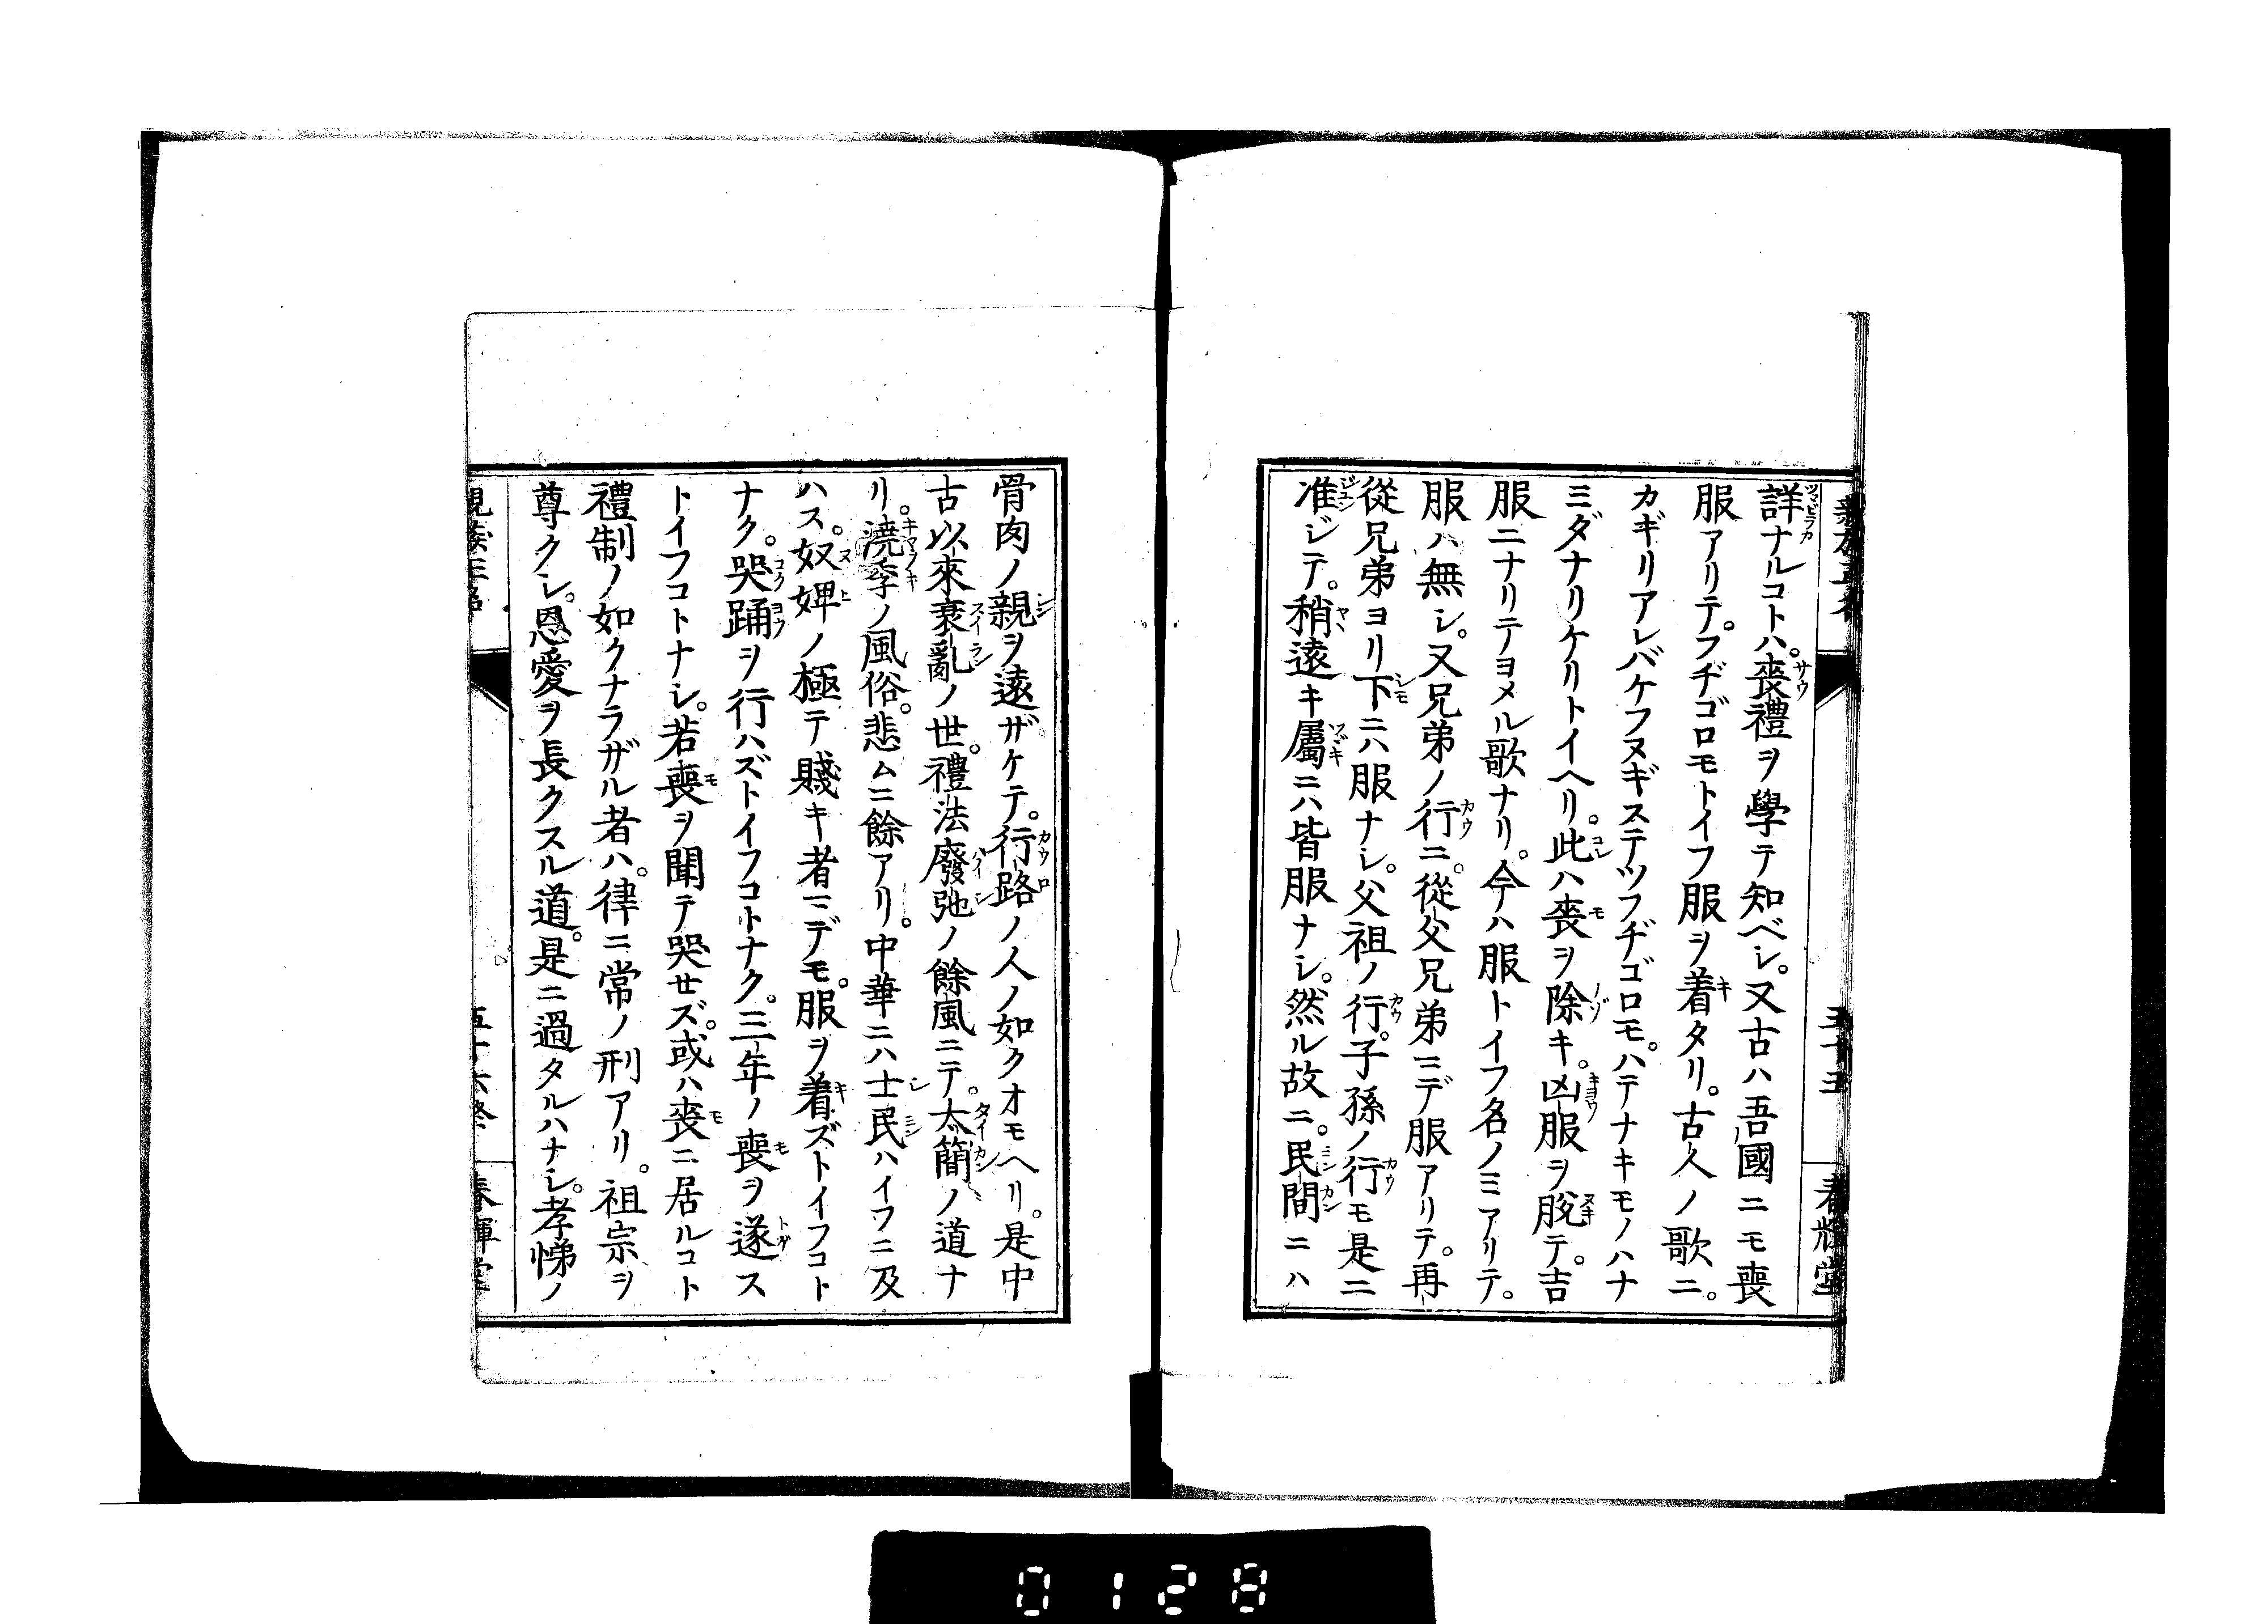 親族正名
五十五
春輝堂
詳ナルコトハ。喪禮ヲ學テ知ベシ。又古ハ吾國ニモ喪
服アリテ。フヂゴロモトイフ服ヲ着タリ。古人ノ歌ニ。
カギリアレバケフヌギステツフヂゴロモ。ハテナキモノハナ
ミダナリケリトイヘリ。此ハ喪ヲ除キ。凶服ヲ脱テ。吉
服ニナリテヨメル歌ナリ。今ハ服トイフ名ノミアリテ。
服ハ無シ。又兄弟ノ行ニ。從父兄弟ミデ服アリテ。再
從兄弟ヨリ下ニハ服ナシ。父祖ノ行。子孫ノ行モ是ニ
准ジテ。稍遠キ屬ニハ皆服ナシ。然ル故ニ。民間ニハ
骨肉ノ親ヲ遠ザケテ。行路ノ人ノ如クオモヘリ。是中
古以來衰亂ノ世。禮法廢弛ノ餘風ニテ。太簡ノ道ナ
リ。澆季ノ風俗。悲ムニ餘アリ。中華ニハ士民ハイフニ及
ハス。奴婢ノ極テ賤キ者マデモ。服ヲ着ズトイフコト
ナク。哭踊ヲ行ハズトイフコトナク。三年ノ喪ヲ遂ス
トイフコトナシ。若喪ヲ聞テ哭セズ。或ハ喪ニ居ルコト
禮制ノ如クナラザル者ハ。律ニ常ノ刑アリ。祖宗ヲ
尊クシ。恩愛ヲ長クスル道。是ニ過タルハナシ。孝悌ノ
親族正名
五十六終
春輝堂
0128